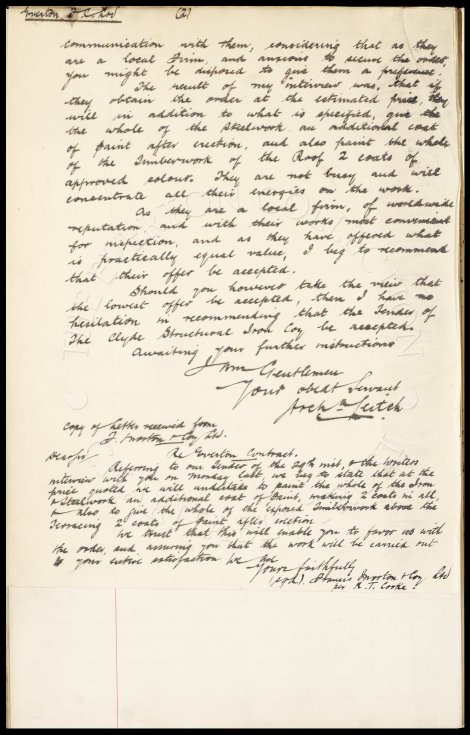 Everton F. C. Ltd (2)
communication with them, considering that as they
are a local Firm, and anxious to secure the order,
you might be disposed to give them a preference.
The result of my interview was, that if
they obtain the order at the estimated price they
will in addition to what is specified, give the
the whole of the Steelwork an additional coat
of paint after erection, and also paint the whole
of the Timberwork of the Roof 2 coats of
approved colour. They are not busy and will
concentrate all their energies on the work.
As they are a local firm, of worldwide
reputation and with their works most convenient
for inspection, and as they have offered what
is practically equal value, I beg to recommend
that their offer be accepted.
Should you however take the view that
the lowest offer be accepted, then I have no
hesitation in recommending that the Tender of
The Clyde Structural Iron Coy be accepted.
Awaiting your further instructions
I am Gentlemen
Your obedt Servant
Archd Leitch
Copy of letter received from
F. Morton & Coy Ltd.
Dear Sir Re Everton Contract.
Referring to our Tender of the 29th inst, & the writers
interview with you on Monday last, we beg to state that at the
price quoted we will undertake to paint the whole of the Iron
& Steelwork an additional coat of paint, making 2 coats in all,
& also to give the whole of the exposed Timberwork above the
Terracing 2 coats of paint after erection
We trust that this will enable you to favor us with
the order, and assuring you that the work will be carried out
to your entire satisfaction we are
Yours faithfully
(sgd) Francis Morton & Coy Ltd
per R. T. Cooke.